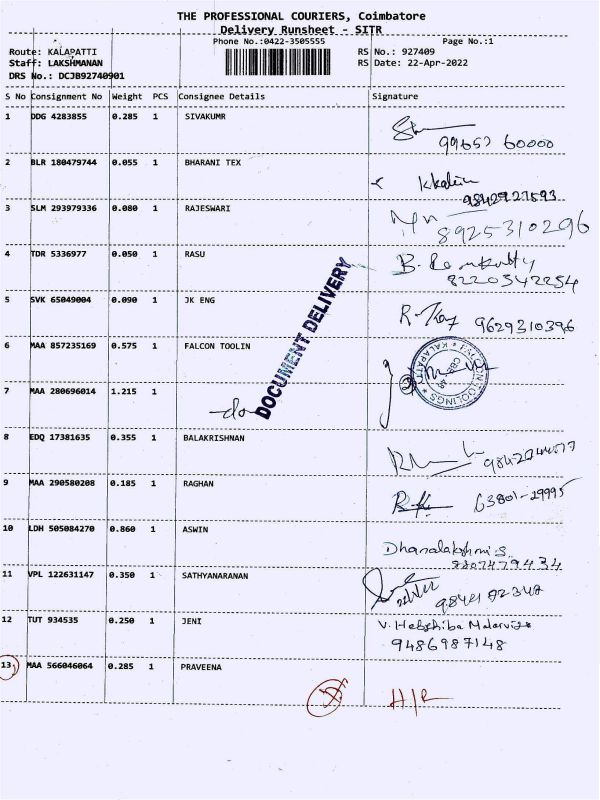 THE PROFESSIONAL COURIERS, Coimbatore
Delivery Runsheet - SITR
Phone No.:0422-3505555 Page No.:1
Route: KALAPATTI RS No.: 927409
Staff: LAKSHMANAN RS Date: 22-Apr-2022
DRS No.: DCJB92740901
S No Consignment No Weight PCS Consignee Details Signature
1 DDG 4283855 0.285 1 SIVAKUMR
99657 60000
2 BLR 180479744 0.055 1 BHARANI TEX
9842927593
3 SLM 293979336 0.080 1 RAJESWARI
8925310296
4 TDR 5336977 0.050 1 RASU
8220342254
5 SVK 65049004 0.090 1 JK ENG
9629310396
6 MAA 857235169 0.575 1 FALCON TOOLIN
DOCUMENT DELIVERY
7 MAA 280696014 1.215 1
-do-
8 EDQ 17381635 0.355 1 BALAKRISHNAN
9 MAA 290580208 0.185 1 RAGHAN
63801-29995
10 LDH 505084270 0.860 1 ASWIN
Dhanalakshmi.S
11 VPL 122631147 0.350 1 SATHYANARANAN
12 TUT 934535 0.250 1 JENI
V. Hebshiba
9486987148
13 MAA 566046064 0.285 1 PRAVEENA
H/R